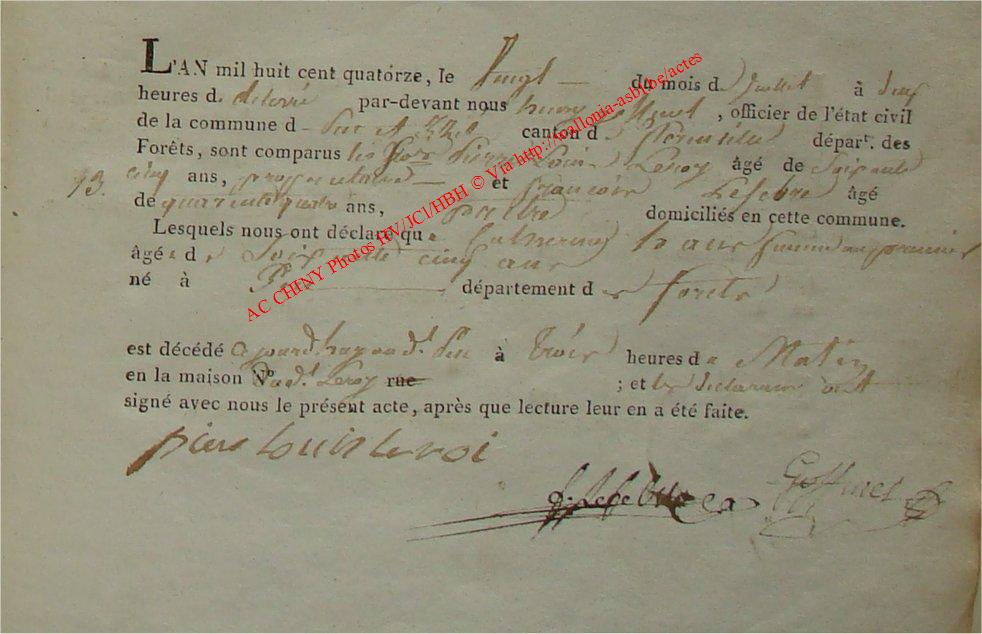 L'AN mil huit cent quatorze, le Vingt du mois de Juillet à deux
heures de par-devant nous henry Goffinet, officier de l'état civil
de la commune d canton de florenville dépar.t des
Forêts, sont comparus les Pierre Louis Leroy âgé de Soixante
93. cinq ans, propriétaire et francois Lefebre âgé
de quarante quatre ans, domiciliés en cette commune.
Lesquels nous ont déclaré que Catherine femme au premier
âgée de Soixante cinq ans
né à département des forêts
est décédé à trois heures du Matin
en la maison N.o dud.t Leroy rue ; et les déclarans ont
signé avec nous le présent acte, après que lecture leur en a été faite.
piere louis leroi
f. Lefebure Goffinet
AC CHINY Photos RV/JCl/HBH © Via http://wallonia-asbl.be/actes